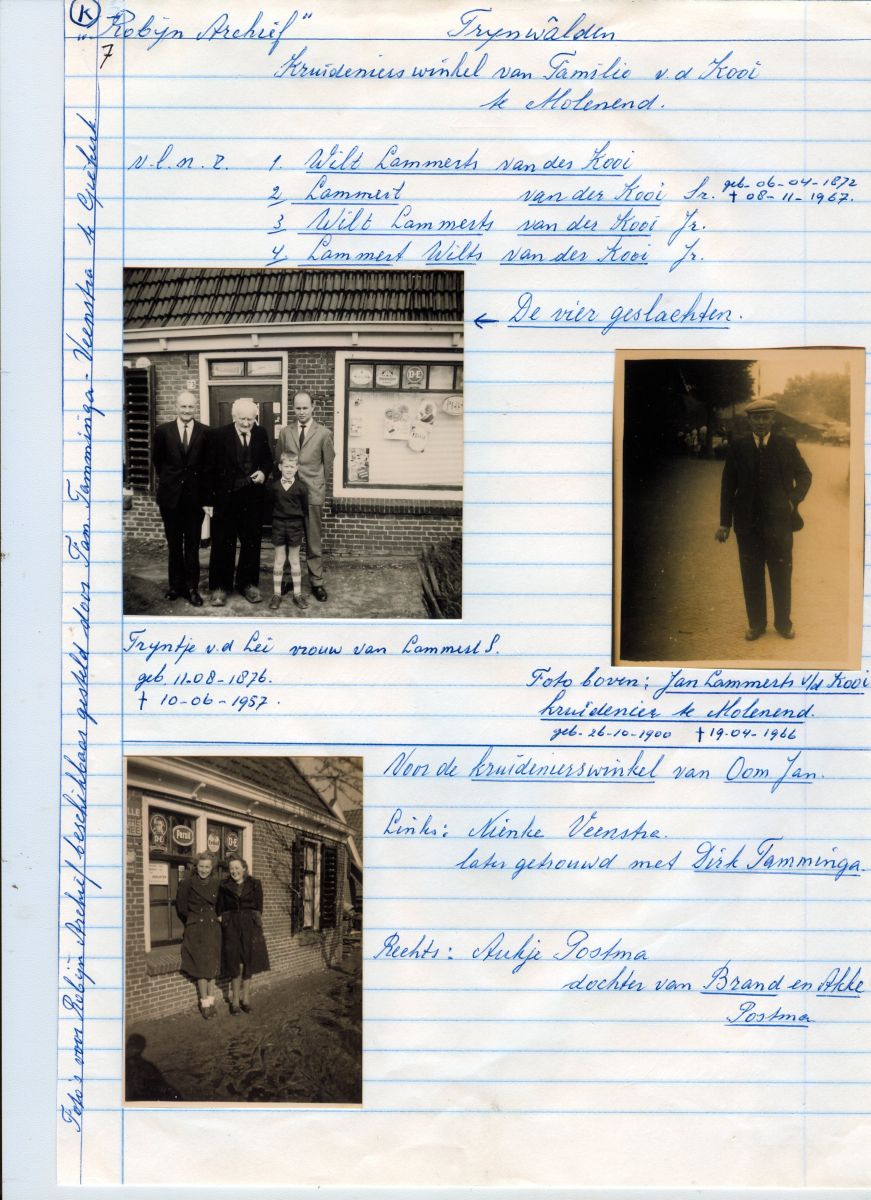 K
"Robijn Archief" Trynwâlden
7
Kruidenierswinkel van Familie v.d Kooi
te Molenend.
v.l.n.r. 1. Wilt Lammerts van der Kooi
2 Lammert van der Kooi Sr. geb-06-04-1872
† 08-11-1967.
3 Wilt Lammerts van der Kooi Jr.
4 Lammert Wilts van der Kooi Jr.
← De vier geslachten.
D·E
Tryntje v.d Lei vrouw van Lammert S.
geb. 11-08-1876.
† 10-06-1957.
Foto boven: Jan Lammerts v/d Kooi
kruidenier te Molenend.
geb-26-10-1900 † 19-04-1966
Voor de kruidenierswinkel van Oom Jan.
Links: Nienke Veenstra.
later getrouwd met Dirk Tamminga.
Rechts: Aukje Postma
dochter van Brand en Akke
Postma
Persil
D·E
D·E
Foto's voor Robijn Archief beschikbaar gesteld door Fam. Tamminga - Veenstra te Giekerk